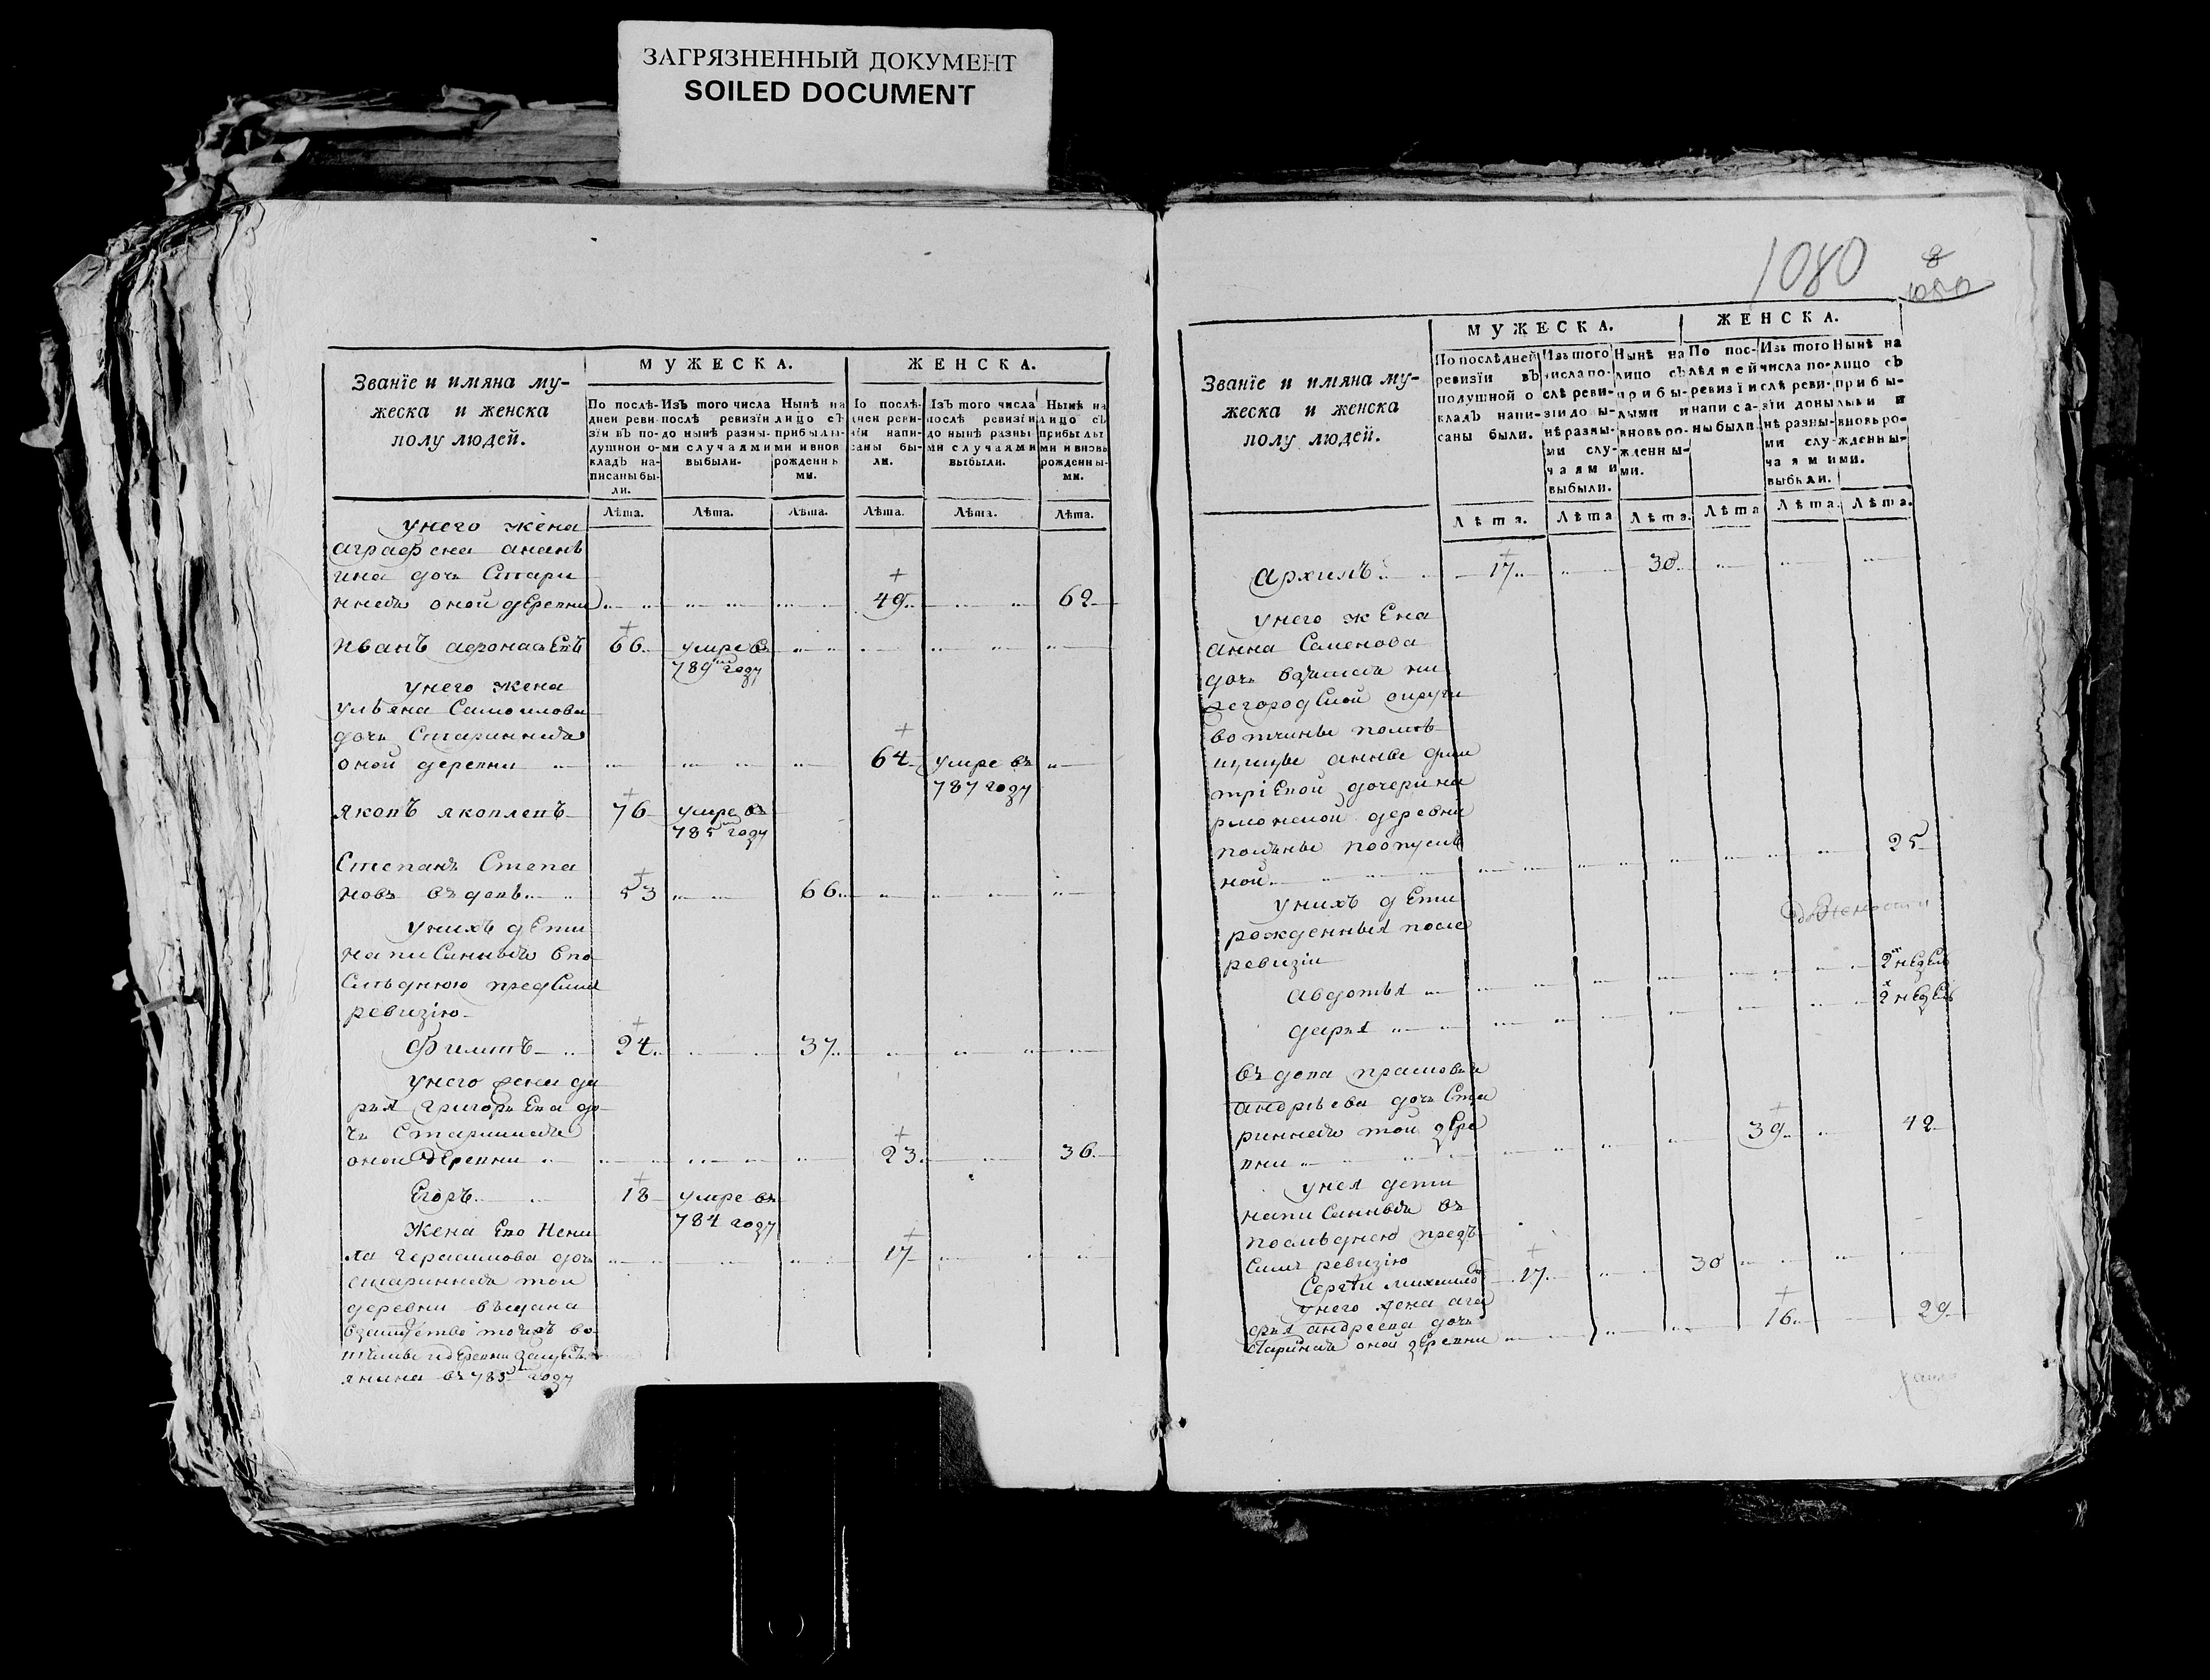 ЗАГРЯЗНЕННЫЙ ДОКУМЕНТ
SOILED DOCUMENT
Званїе и имяна му-
жеска и женска
полу людей.
МУЖЕСКА.
ЖЕНСКА.
По послѣ-
дней реви-
зїи въ по-
душной о-
кладъ на-
писаны бы-
ли.
Изъ того числа
послѣ ревизїи
до нынѣ разны-
ми случаями
выбыли.
Нынѣ на
лицо съ
прибылы-
ми и вновь
рожденны-
ми.
По послѣ-
дней реви-
зїи напи-
саны бы-
ли.
Изъ того числа
послѣ ревизїи
до нынѣ разны-
ми случаями
выбыли.
Нынѣ на
лицо съ
прибылы-
ми и вновь
рожденны-
ми.
Лѣта. Лѣта. Лѣта. Лѣта. Лѣта. Лѣта.
унего жена
аграфена анань
ина дочь Стари
ннаѧ оной деревни 49 62
Иванъ афонасьевъ 66 умре в
789 году
унего жена
ульяна Самоилова
дочь Стариннаѧ
оной деревни 64 умре въ
787 году
яковъ яковлевъ 76 умре въ
785 году
Степанъ Степа
новъ вдовъ 53 66
унихъ дети
написанныѧ впо
следнюю предъ симъ
ревизiю
Филипъ 24 37
унего жена да
рья григорьева до
чь Стариннаѧ
оной деревни 23 36
Егоръ 18 умре въ
784 году
Жена Ево Нени
ла Герасимова дочь 17
стариннаѧ той
деревни выдана
взамужство тойжъ во
тчины и деревни
янина въ 785 году
1080
8
1080
Званїе и имяна му-
жеска и женска
полу людей.
МУЖЕСКА.
ЖЕНСКА.
По послѣдней
ревизїи въ
подушной о
кладъ напи-
саны были.
Изъ того
числа по-
слѣ реви-
зїи до ны-
нѣ разны-
ми слу-
чаями
выбыли.
Нынѣ на
лицо съ
прибы-
лыми и
вновь ро-
жденны-
ми.
По пос-
лѣдней
ревизїи
написа-
ны были.
Изъ того
числа по-
слѣ реви-
зїи до ны-
нѣ разны-
ми слу-
чаями
выбыли.
Нынѣ на
лицо съ
прибы-
лыми и
вновь ро-
жденны-
ми.
Лѣта. Лѣта Лѣта. Лѣта Лѣта. Лѣта.
Архипъ 17 30
унего жена
анна Семенова
дочь взѧтаѧ ни
жегородской округи
вотчины поме
щицы анны дми
тріевой дочери
деревни
ной 25
унихъ дети
рожденныя после
ревизіи
авдотья 2 недель
дарья 2 недель
вдова прасковья
андрѣева дочь Ста
риннаѧ той дере
вни 39 42
унея дети
написанныѧ въ
последнею предъ
симъ ревизiю
Сергѣй михаиловъ 17 30
унего жена ага
фья андреева дочь
старинная оной деревни 16 29